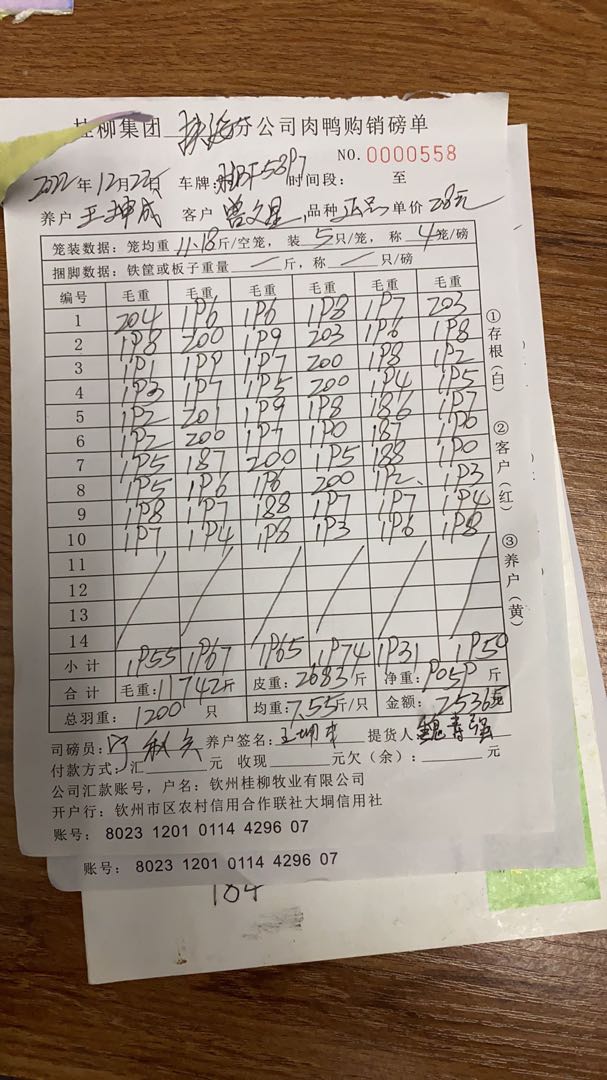 桂柳集团 分公司肉鸭购销磅单
NO. 0000558
2022年12月22日 车牌: 时间段: 至
养户 王坤成 客户 曾文星 品种 正品 单价 28元
笼装数据: 笼均重 11.18 斤/空笼, 装 5 只/笼, 称 4 笼/磅
捆脚数据: 铁筐或板子重量 / 斤, 称 / 只/磅
编号 毛重 毛重 毛重 毛重 毛重 毛重
1 204 196 196 198 197 203
2 198 200 199 203 196 198
3 191 199 197 200 198 192
4 193 197 195 200 194 195
5 192 201 199 198 186 197
6 192 200 197 190 187 190
7 195 187 200 195 188 190
8 195 196 196 200 192 193
9 198 197 188 197 197 194
10 197 194 198 193 196 198
11 / / / / / /
12
13
14
小计 1955 1967 1965 1974 1931 1950
合计 毛重: 11742斤 皮重: 2683 斤 净重: 9059 斤
总羽重: 1200 只 均重: 7.55 斤/只 金额: 25365元
①存根(白)
②客户(红)
③养户(黄)
司磅员: 养户签名: 王坤成 提货人 魏青强
付款方式: 汇 元 收现 元欠(余): 元
公司汇款账号, 户名: 钦州桂柳牧业有限公司
开户行: 钦州市区农村信用合作联社大垌信用社
账号: 8023 1201 0114 4296 07
账号: 8023 1201 0114 4296 07